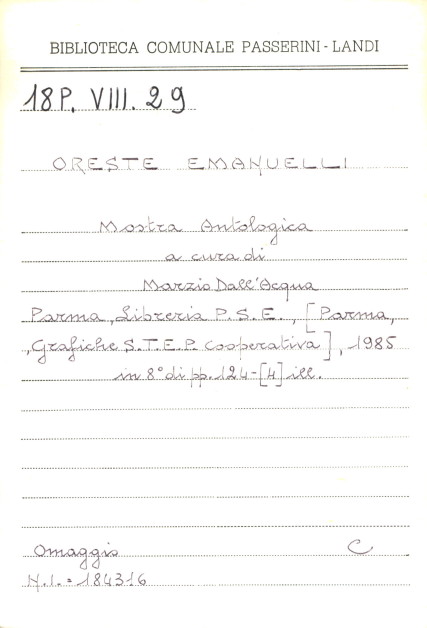 BIBLIOTECA COMUNALE PASSERINI - LANDI
18P. VIII. 29
ORESTE EMANUELLI
Mostra Antologica
a cura di
Marzio Dall'Acqua
Parma, Libreria P.S.E., [Parma,
, Grafiche S.T.E.P. Cooperativa], 1985
in 8° di pp. 124-[4] ill.
Omaggio C
N.I. = 184316